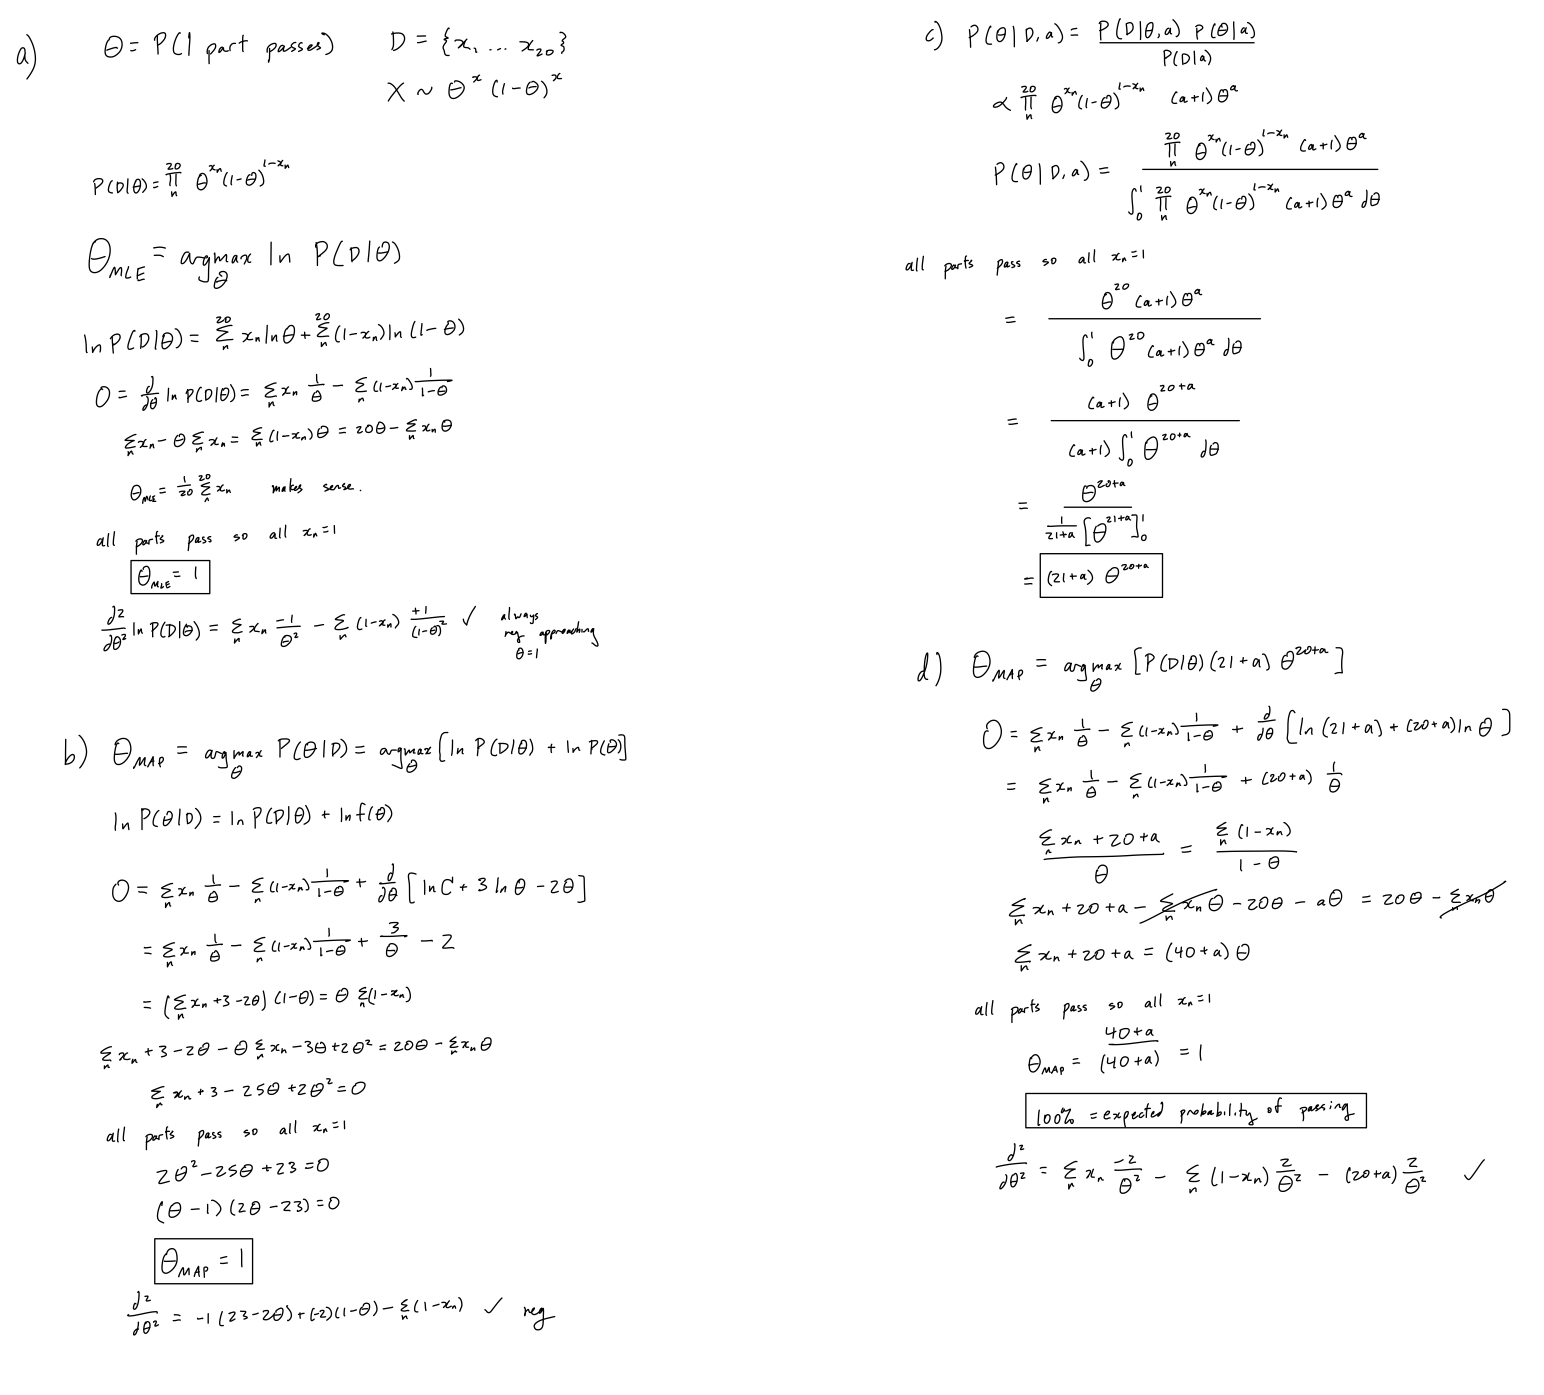 a) θ = P(1 part passes) D = {x₁ ... x₂₀}
X ~ θ^x (1-θ)^x
P(D|θ) = ∏_n^20 θ^{x_n} (1-θ)^{1-x_n}
θ_MLE = argmax_θ ln P(D|θ)
ln P(D|θ) = Σ_n^20 x_n ln θ + Σ_n^20 (1-x_n) ln (1-θ)
0 = d/dθ ln P(D|θ) = Σ_n x_n 1/θ - Σ_n (1-x_n) 1/(1-θ)
Σ_n x_n - θ Σ_n x_n = Σ_n (1-x_n) θ = 20θ - Σ_n x_n θ
θ_MLE = 1/20 Σ_n^20 x_n makes sense.
all parts pass so all x_n = 1
θ_MLE = 1
d²/dθ² ln P(D|θ) = Σ_n x_n -1/θ² - Σ_n (1-x_n) +1/(1-θ)² ✓ always
neg approaching
θ=1
b) θ_MAP = argmax_θ P(θ|D) = argmax_θ [ln P(D|θ) + ln P(θ)]
ln P(θ|D) = ln P(D|θ) + ln f(θ)
0 = Σ_n x_n 1/θ - Σ_n (1-x_n) 1/(1-θ) + d/dθ [ln C + 3 ln θ - 2θ]
= Σ_n x_n 1/θ - Σ_n (1-x_n) 1/(1-θ) + 3/θ - 2
= (Σ_n x_n + 3 - 2θ) (1-θ) = θ Σ_n (1-x_n)
Σ_n x_n + 3 - 2θ - θ Σ_n x_n - 3θ + 2θ² = 20θ - Σ_n x_n θ
Σ_n x_n + 3 - 25θ + 2θ² = 0
all parts pass so all x_n = 1
2θ² - 25θ + 23 = 0
(θ - 1) (2θ - 23) = 0
θ_MAP = 1
d²/dθ² = -1 (23-2θ) + (-2)(1-θ) - Σ_n (1-x_n) ✓ neg
c) P(θ|D,a) = P(D|θ,a) P(θ|a) / P(D|a)
∝ ∏_n^20 θ^{x_n} (1-θ)^{1-x_n} (a+1) θ^a
P(θ|D,a) = ∏_n^20 θ^{x_n} (1-θ)^{1-x_n} (a+1) θ^a / ∫_0^1 ∏_n^20 θ^{x_n} (1-θ)^{1-x_n} (a+1) θ^a dθ
all parts pass so all x_n = 1
= θ^20 (a+1) θ^a / ∫_0^1 θ^20 (a+1) θ^a dθ
= (a+1) θ^{20+a} / (a+1) ∫_0^1 θ^{20+a} dθ
= θ^{20+a} / 1/(21+a) [θ^{21+a}]_0^1
= (21+a) θ^{20+a}
d) θ_MAP = argmax_θ [P(D|θ) (21+a) θ^{20+a}]
0 = Σ_n x_n 1/θ - Σ_n (1-x_n) 1/(1-θ) + d/dθ [ln (21+a) + (20+a) ln θ]
= Σ_n x_n 1/θ - Σ_n (1-x_n) 1/(1-θ) + (20+a) 1/θ
Σ_n x_n + 20 + a / θ = Σ_n (1-x_n) / 1-θ
Σ_n x_n + 20 + a - Σ_n x_n θ - 20θ - aθ = 20θ - Σ_n x_n θ
Σ_n x_n + 20 + a = (40+a) θ
all parts pass so all x_n = 1
θ_MAP = 40+a / (40+a) = 1
100% = expected probability of passing
d²/dθ² = Σ_n x_n -2/θ² - Σ_n (1-x_n) 2/θ² - (20+a) 2/θ² ✓